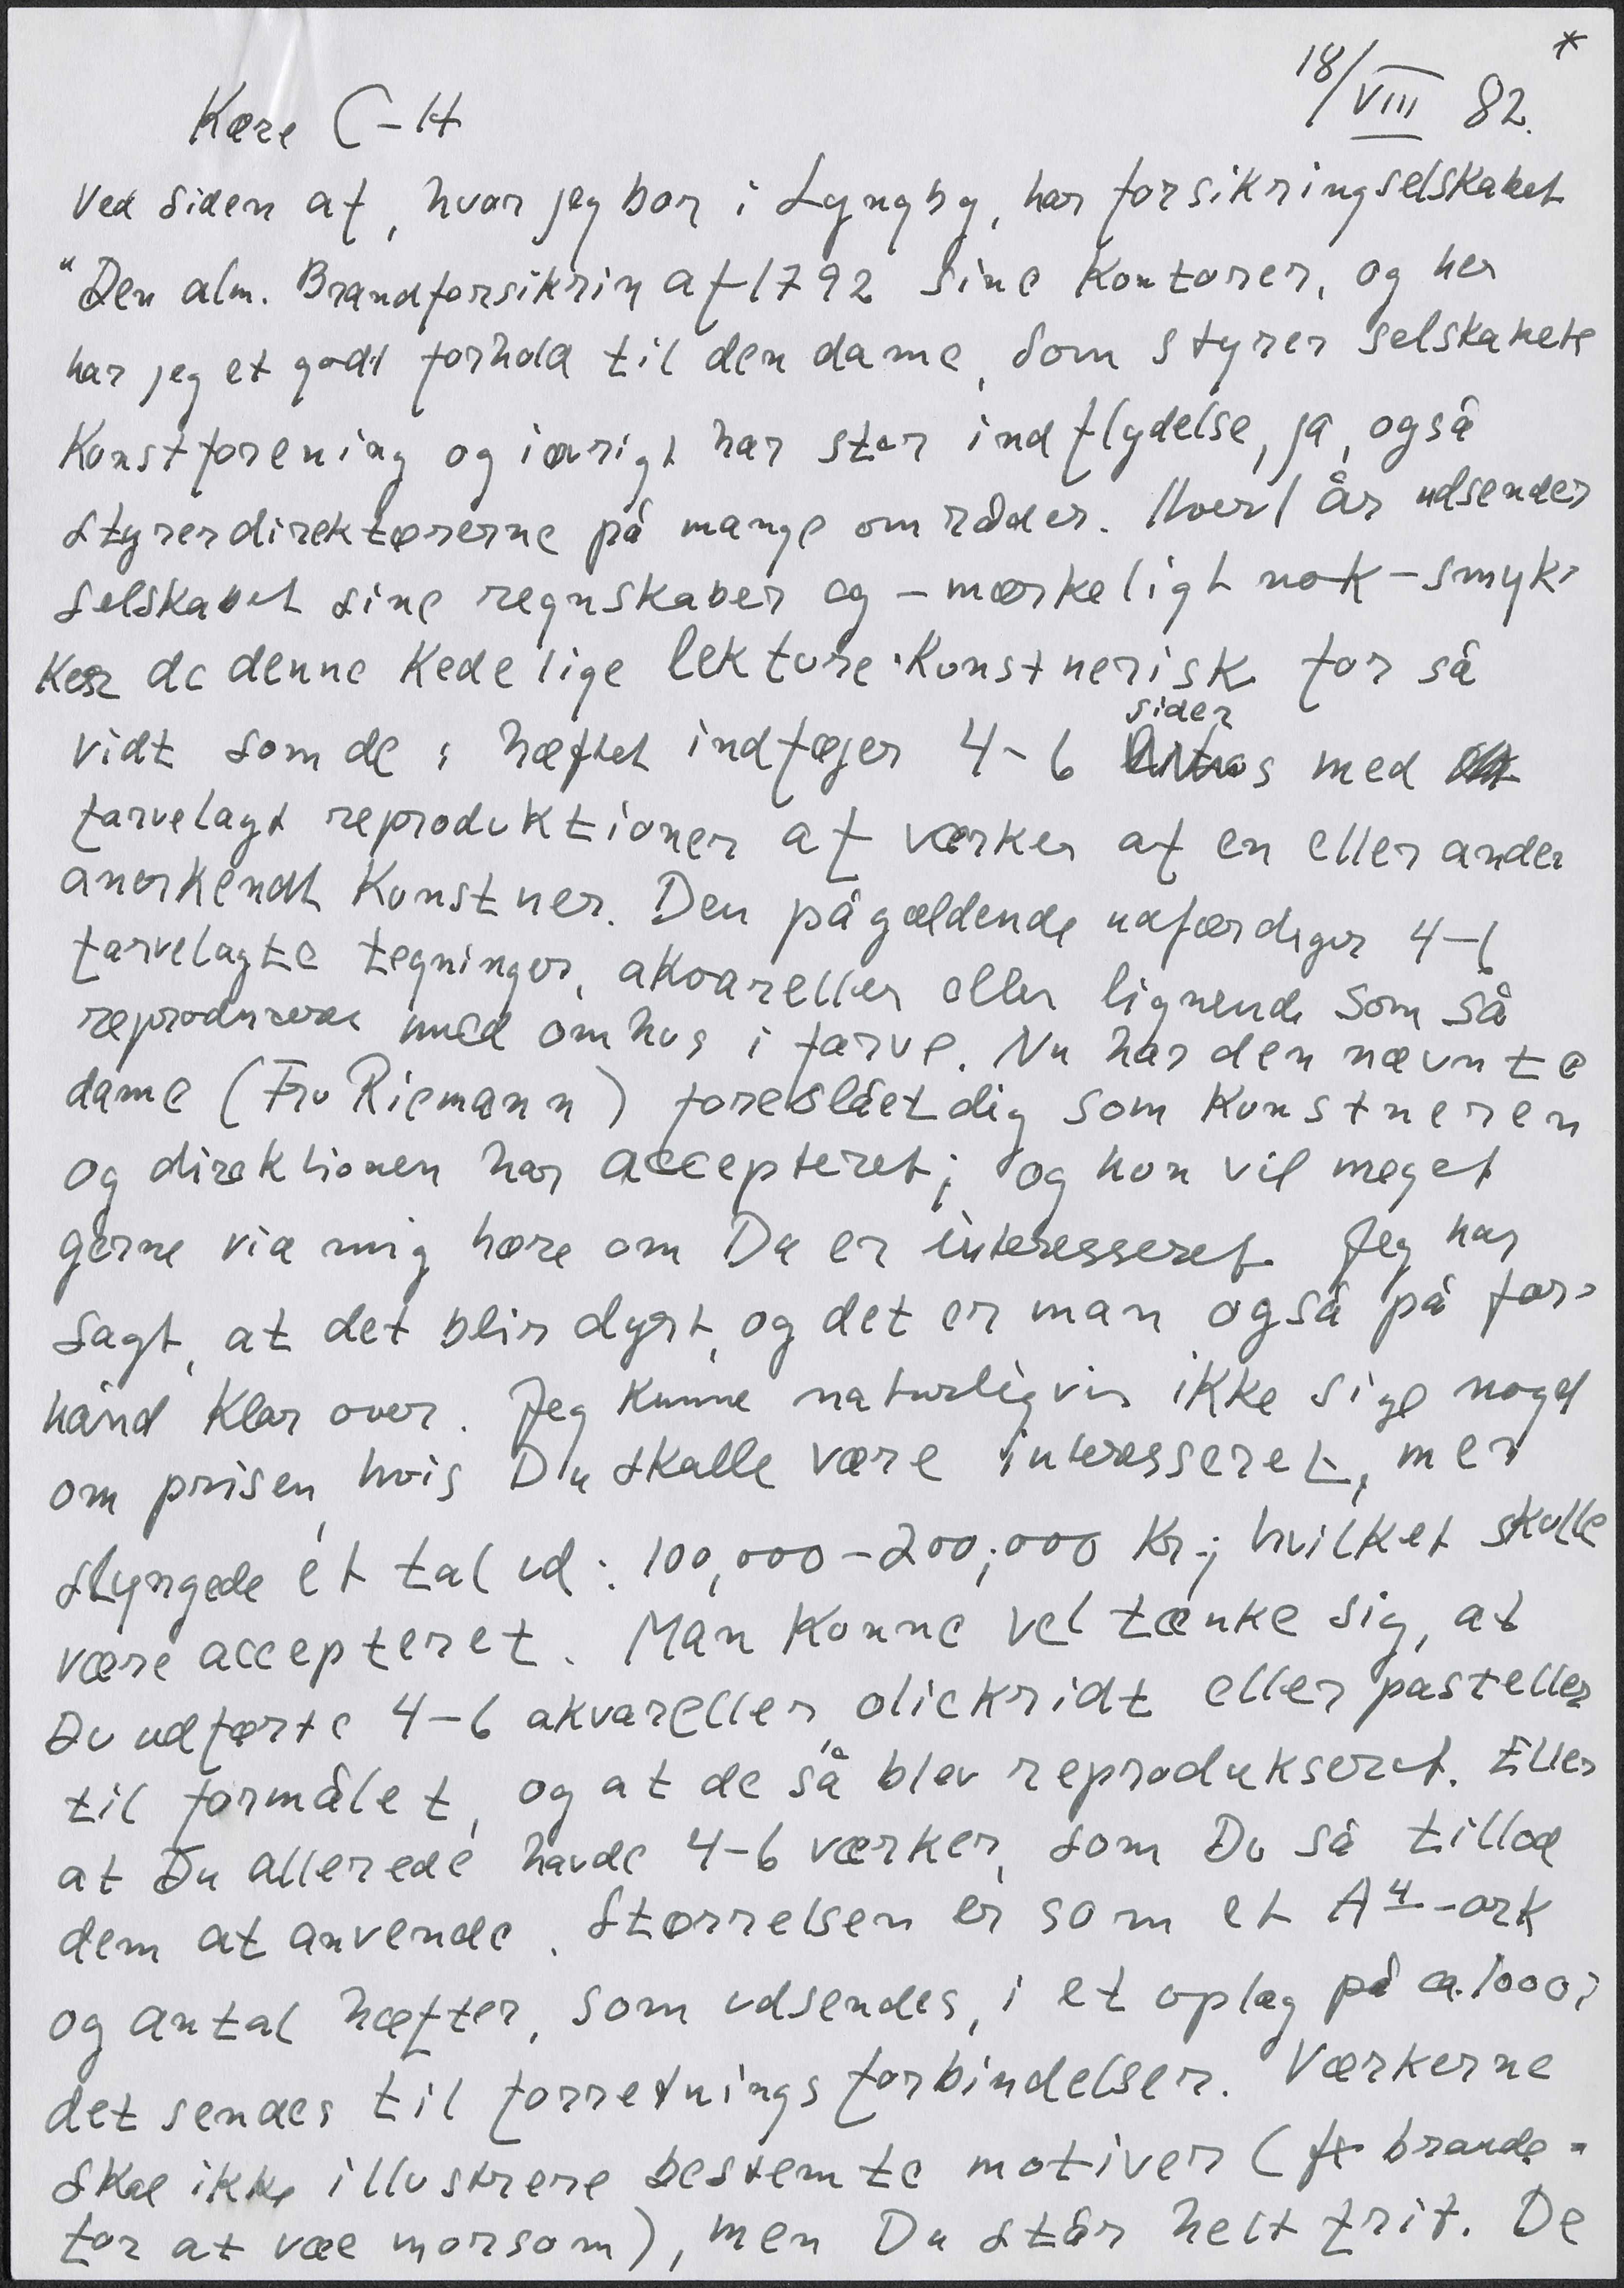 *
18/VIII 82.
Kære C-H
Ved siden af, hvor jeg bor i Lyngby, har forsikringselskabet
"Den alm. Brandforsikrin af 1792 sine kontorer, og her
har jeg et godt forhold til den dame, som styrer selskabets
Kunstforening og iøvrigt har stor indflydelse, ja, også
styrer direktørerne på mange områder. Hvert år udsender
selskabet sine regnskaber og - mærkeligt nok - smyk-
ker de denne kedelige lekture kunstnerisk for så
vidt som de i hæftet indføjer 4-6 sider med
farvelagt reproduktioner af værker af en eller anden
anerkendt Kunstner. Den pågældende udfærdiger 4-6
farvelagte tegninger, akvareller eller lignende som så
reproduceres med omhu i farve. Nu har den nævnte
dame (Fru Riemann) foreslået dig som Kunstneren
og direktionen har accepteret; og hun vil meget
gerne via mig høre om Du er interesseret. Jeg har
sagt, at det blir dyrt, og det er man også på for-
hånd klar over. Jeg kunne naturligvis ikke sige noget
om prisen, hvis Du skulle være interesseret, men
slyngede ét tal ud: 100,000-200,000 Kr; hvilket skulle
være accepteret. Man kunne vel tænke sig, at
Du udførte 4-6 akvareller, oliekridt eller pasteller
til formålet, og at de så blev reprodukseret. Eller
at Du allerede havde 4-6 værker, som Du så tillod
dem at anvende. Størrelsen er som et A4-ark
og antal hæfter, som udsendes, i et oplag på ca. 1000;
det sendes til forretningsforbindelser. Værkerne
skal ikke illustrere bestemte motiver (fx brande -
for at væe morsom), men Du står helt frit. De